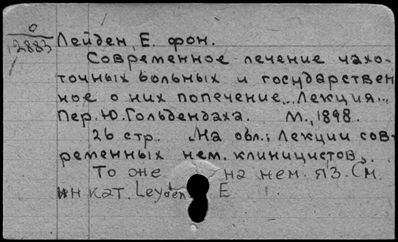 0
12883
Лейден, Е. фон.
Современное лечение чахо-
точных больных и государствен
ное о них попечение... Лекция...
Пер. Ю. Гольдендаха. М., 1898.
26 стр. На обл.: Лекции сов-
ременных нем. клиницистов.
То же на нем. яз. См.
ин кат. Leyden E